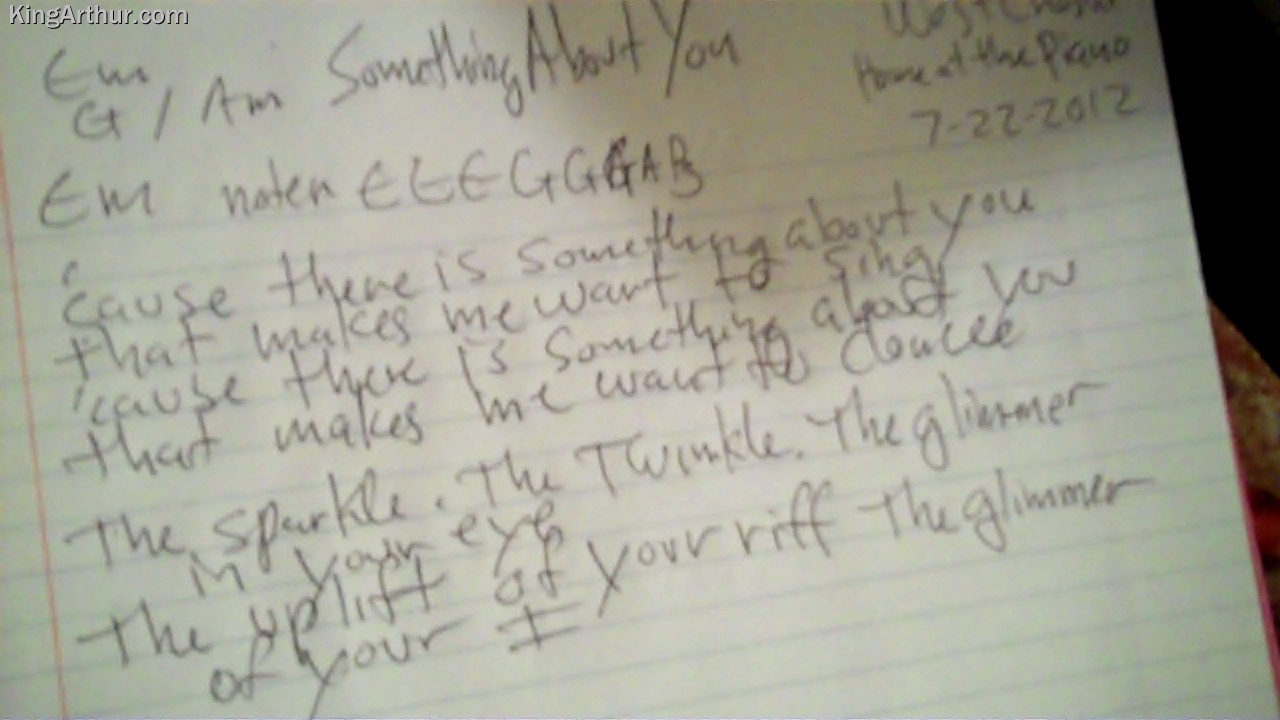 KingArthur.com
Em
G / Am Something About You
West Chester
Home at the Piano
7-22-2012
Em noten E E E G G G A B
'cause there is something about you
that makes me want to sing
'cause there is something about you
that makes me want to dance
The sparkle. The Twinkle. The glimmer
in your eye
The uplift of your riff The glimmer
of your I